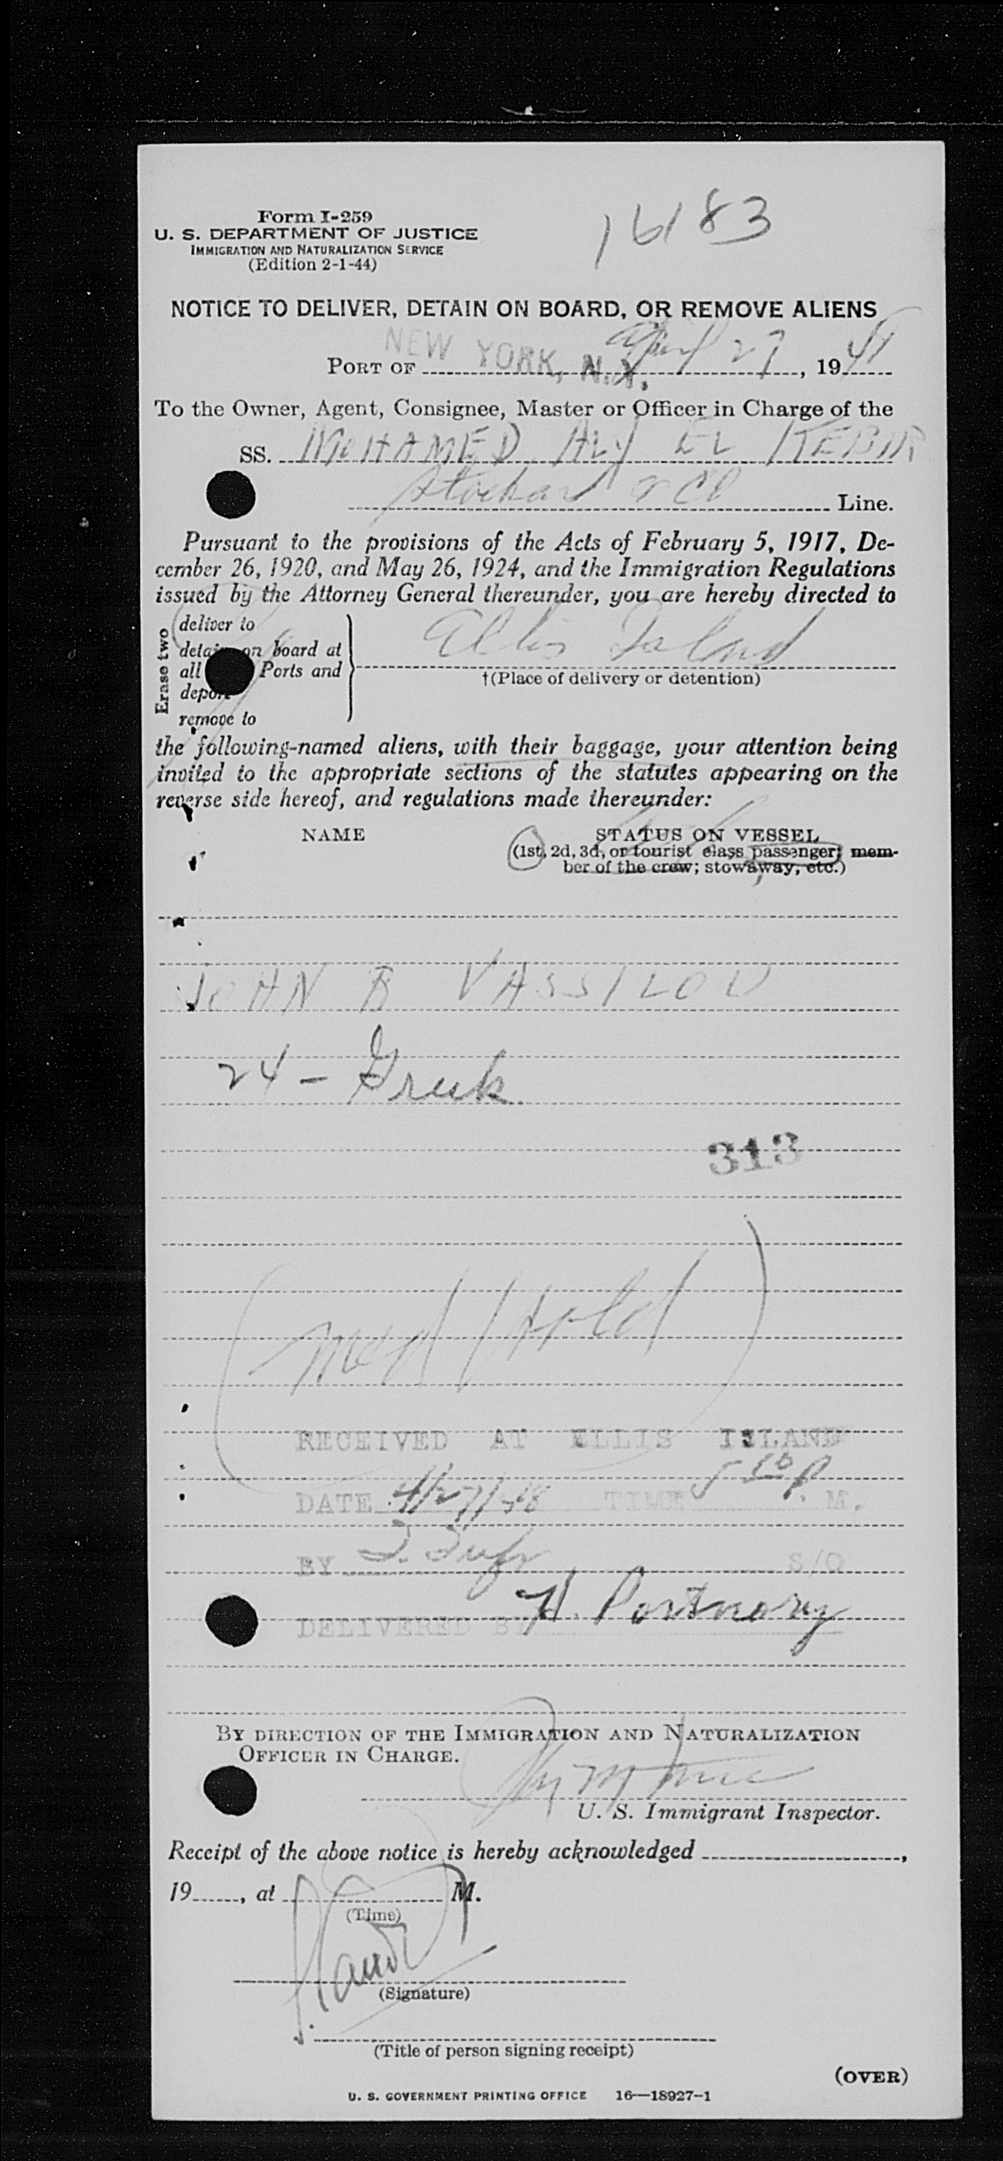 Form I-259
U. S. DEPARTMENT OF JUSTICE
IMMIGRATION AND NATURALIZATION SERVICE
(Edition 2-1-44)
16183
NOTICE TO DELIVER, DETAIN ON BOARD, OR REMOVE ALIENS
PORT OF NEW YORK, N.Y. April 27, 1948
To the Owner, Agent, Consignee, Master or Officer in Charge of the
SS. MOHAMED ALY EL KEBIR
& Co Line.
Pursuant to the provisions of the Acts of February 5, 1917, De-
cember 26, 1920, and May 26, 1924, and the Immigration Regulations
issued by the Attorney General thereunder, you are hereby directed to
Erase two
deliver to
detain on board at
all Ports and
deport
remove to
Ellis Island
†(Place of delivery or detention)
the following-named aliens, with their baggage, your attention being
invited to the appropriate sections of the statutes appearing on the
reverse side hereof, and regulations made thereunder:
NAME
STATUS ON VESSEL
(1st, 2d, 3d, or tourist class passenger; mem-
ber of the crew; stowaway, etc.)
JOHN B VASSILOU
24 - Greek.
313
(Med Hold)
RECEIVED AT ELLIS ISLAND
DATE 4/27/48 TIME 5 10 P. M.
BY S/O
DELIVERED BY H. Portnory
BY DIRECTION OF THE IMMIGRATION AND NATURALIZATION
OFFICER IN CHARGE.
U. S. Immigrant Inspector.
Receipt of the above notice is hereby acknowledged ,
19 , at M.
(Time)
(Signature)
(Title of person signing receipt)
(OVER)
U. S. GOVERNMENT PRINTING OFFICE 16—18927-1